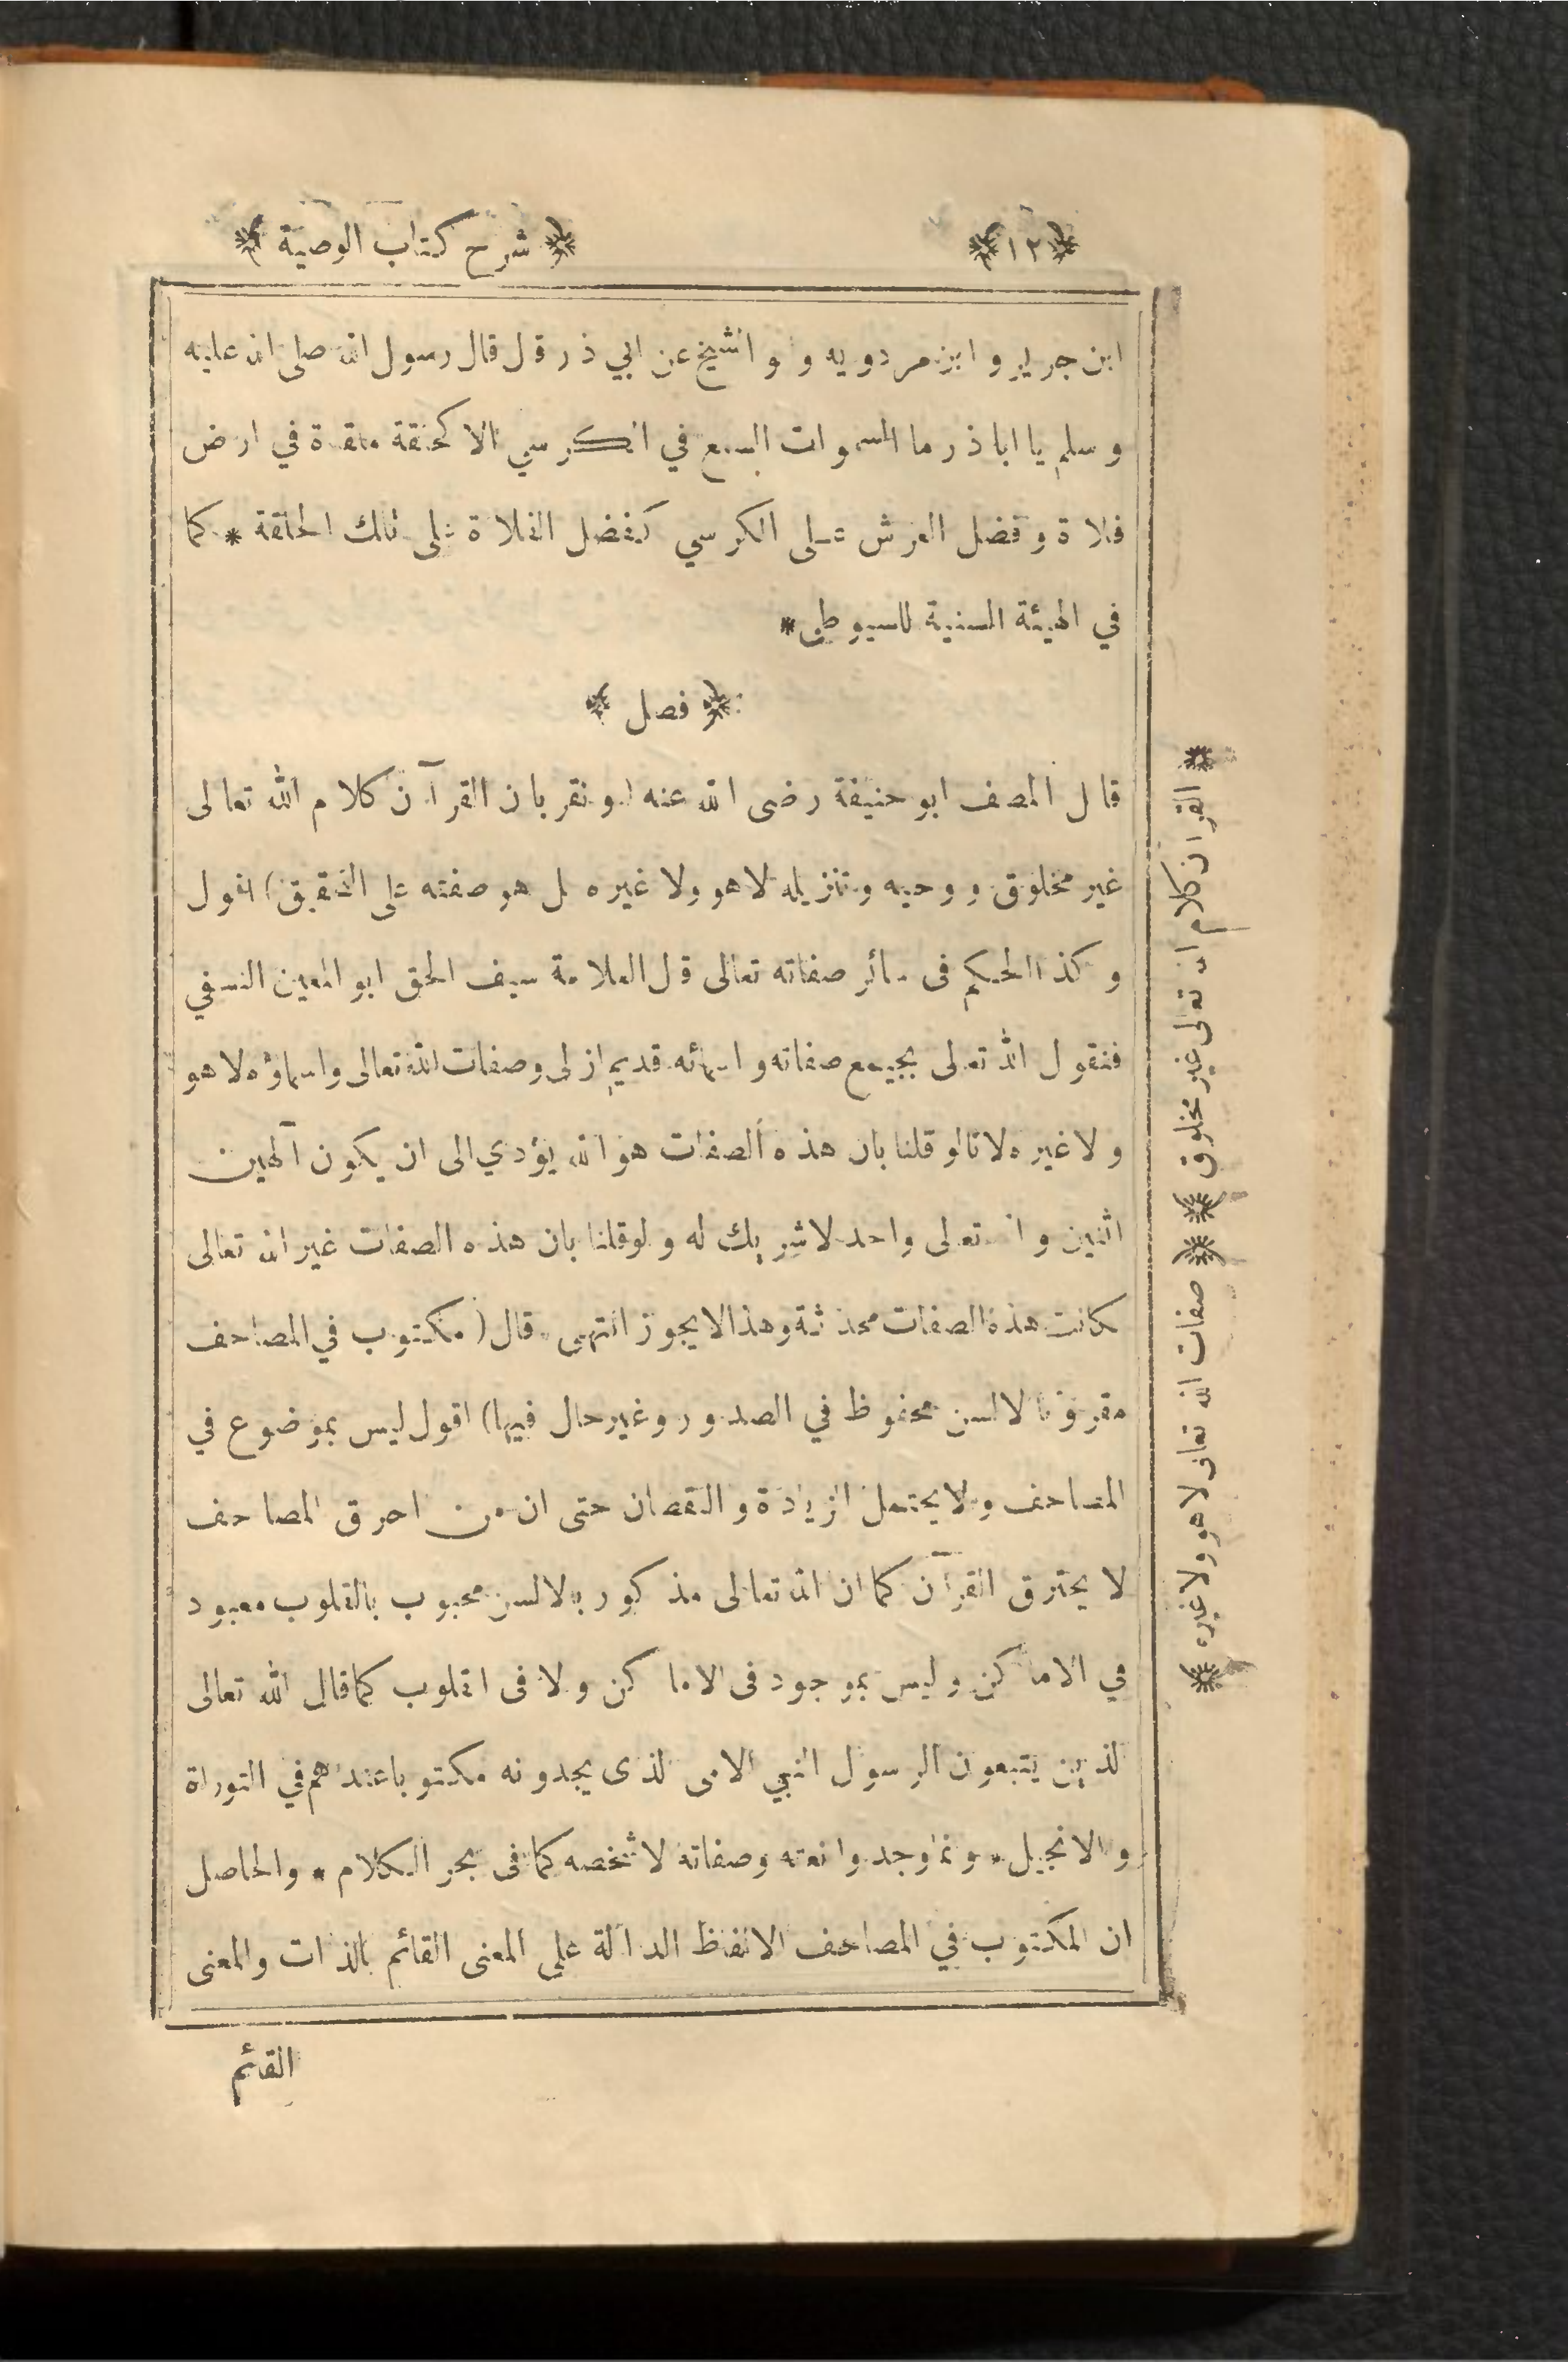 ﴿١٢﴾
﴿ شرح كتاب الوصية ﴾
ابن جرير وابن مردويه و و الشيخ عن ابي ذر قال قال رسول الله صلى الله عليه
وسلم يا اباذر ما السموات السبع في الكرسي الا كحلقة ملقاة في ارض
فلاة وفضل العرش على الكرسي كفضل الفلاة على تلك الحلقة * كما
في الهيئة السنية للسيوطي *
﴿ فصل ﴾
قال المصنف ابو حنيفة رضى الله عنه (ونقر بان القرآن كلام الله تعالى
غير مخلوق ووحيه وتنزيله لا هو ولا غيره بل هو صفته على التحقيق) اقول
وكذا الحكم فى سائر صفاته تعالى قال العلامة سيف الحق ابو المعين النسفي
فنقول الله تعالى بجميع صفاته واسمائه قديم ازلى وصفات الله تعالى واسماؤه لا هو
ولا غيره لانا لو قلنا بان هذه الصفات هو الله يؤدي الى ان يكون آلهين
اثنين والله تعالى واحد لا شريك له ولو قلنا بان هذه الصفات غير الله تعالى
لكانت هذه الصفات محدثة وهذا لا يجوز انتهى * قال (مكتوب في المصاحف
مقروء بالالسن محفوظ في الصدور وغير حال فيها) اقول ليس بموضوع في
المصاحف ولا يحتمل الزيادة والنقصان حتى ان من احرق المصاحف
لا يحترق القرآن كما ان الله تعالى مذكور بالالسن محبوب بالقلوب معبود
في الاماكن وليس بموجود فى الاماكن ولا فى القلوب كما قال الله تعالى
الذين يتبعون الرسول النبي الامى الذى يجدونه مكتوبا عندهم في التوراة
والانجيل * وانما وجدوا نعته وصفاته لا شخصه كما فى بحر الكلام * والحاصل
ان المكتوب في المصاحف الالفاظ الدالة على المعنى القائم بالذات والمعنى
القائم
﴿ القرآن كلام الله تعالى غير مخلوق ﴾
﴿ صفات الله تعالى لا هو ولا غيره ﴾